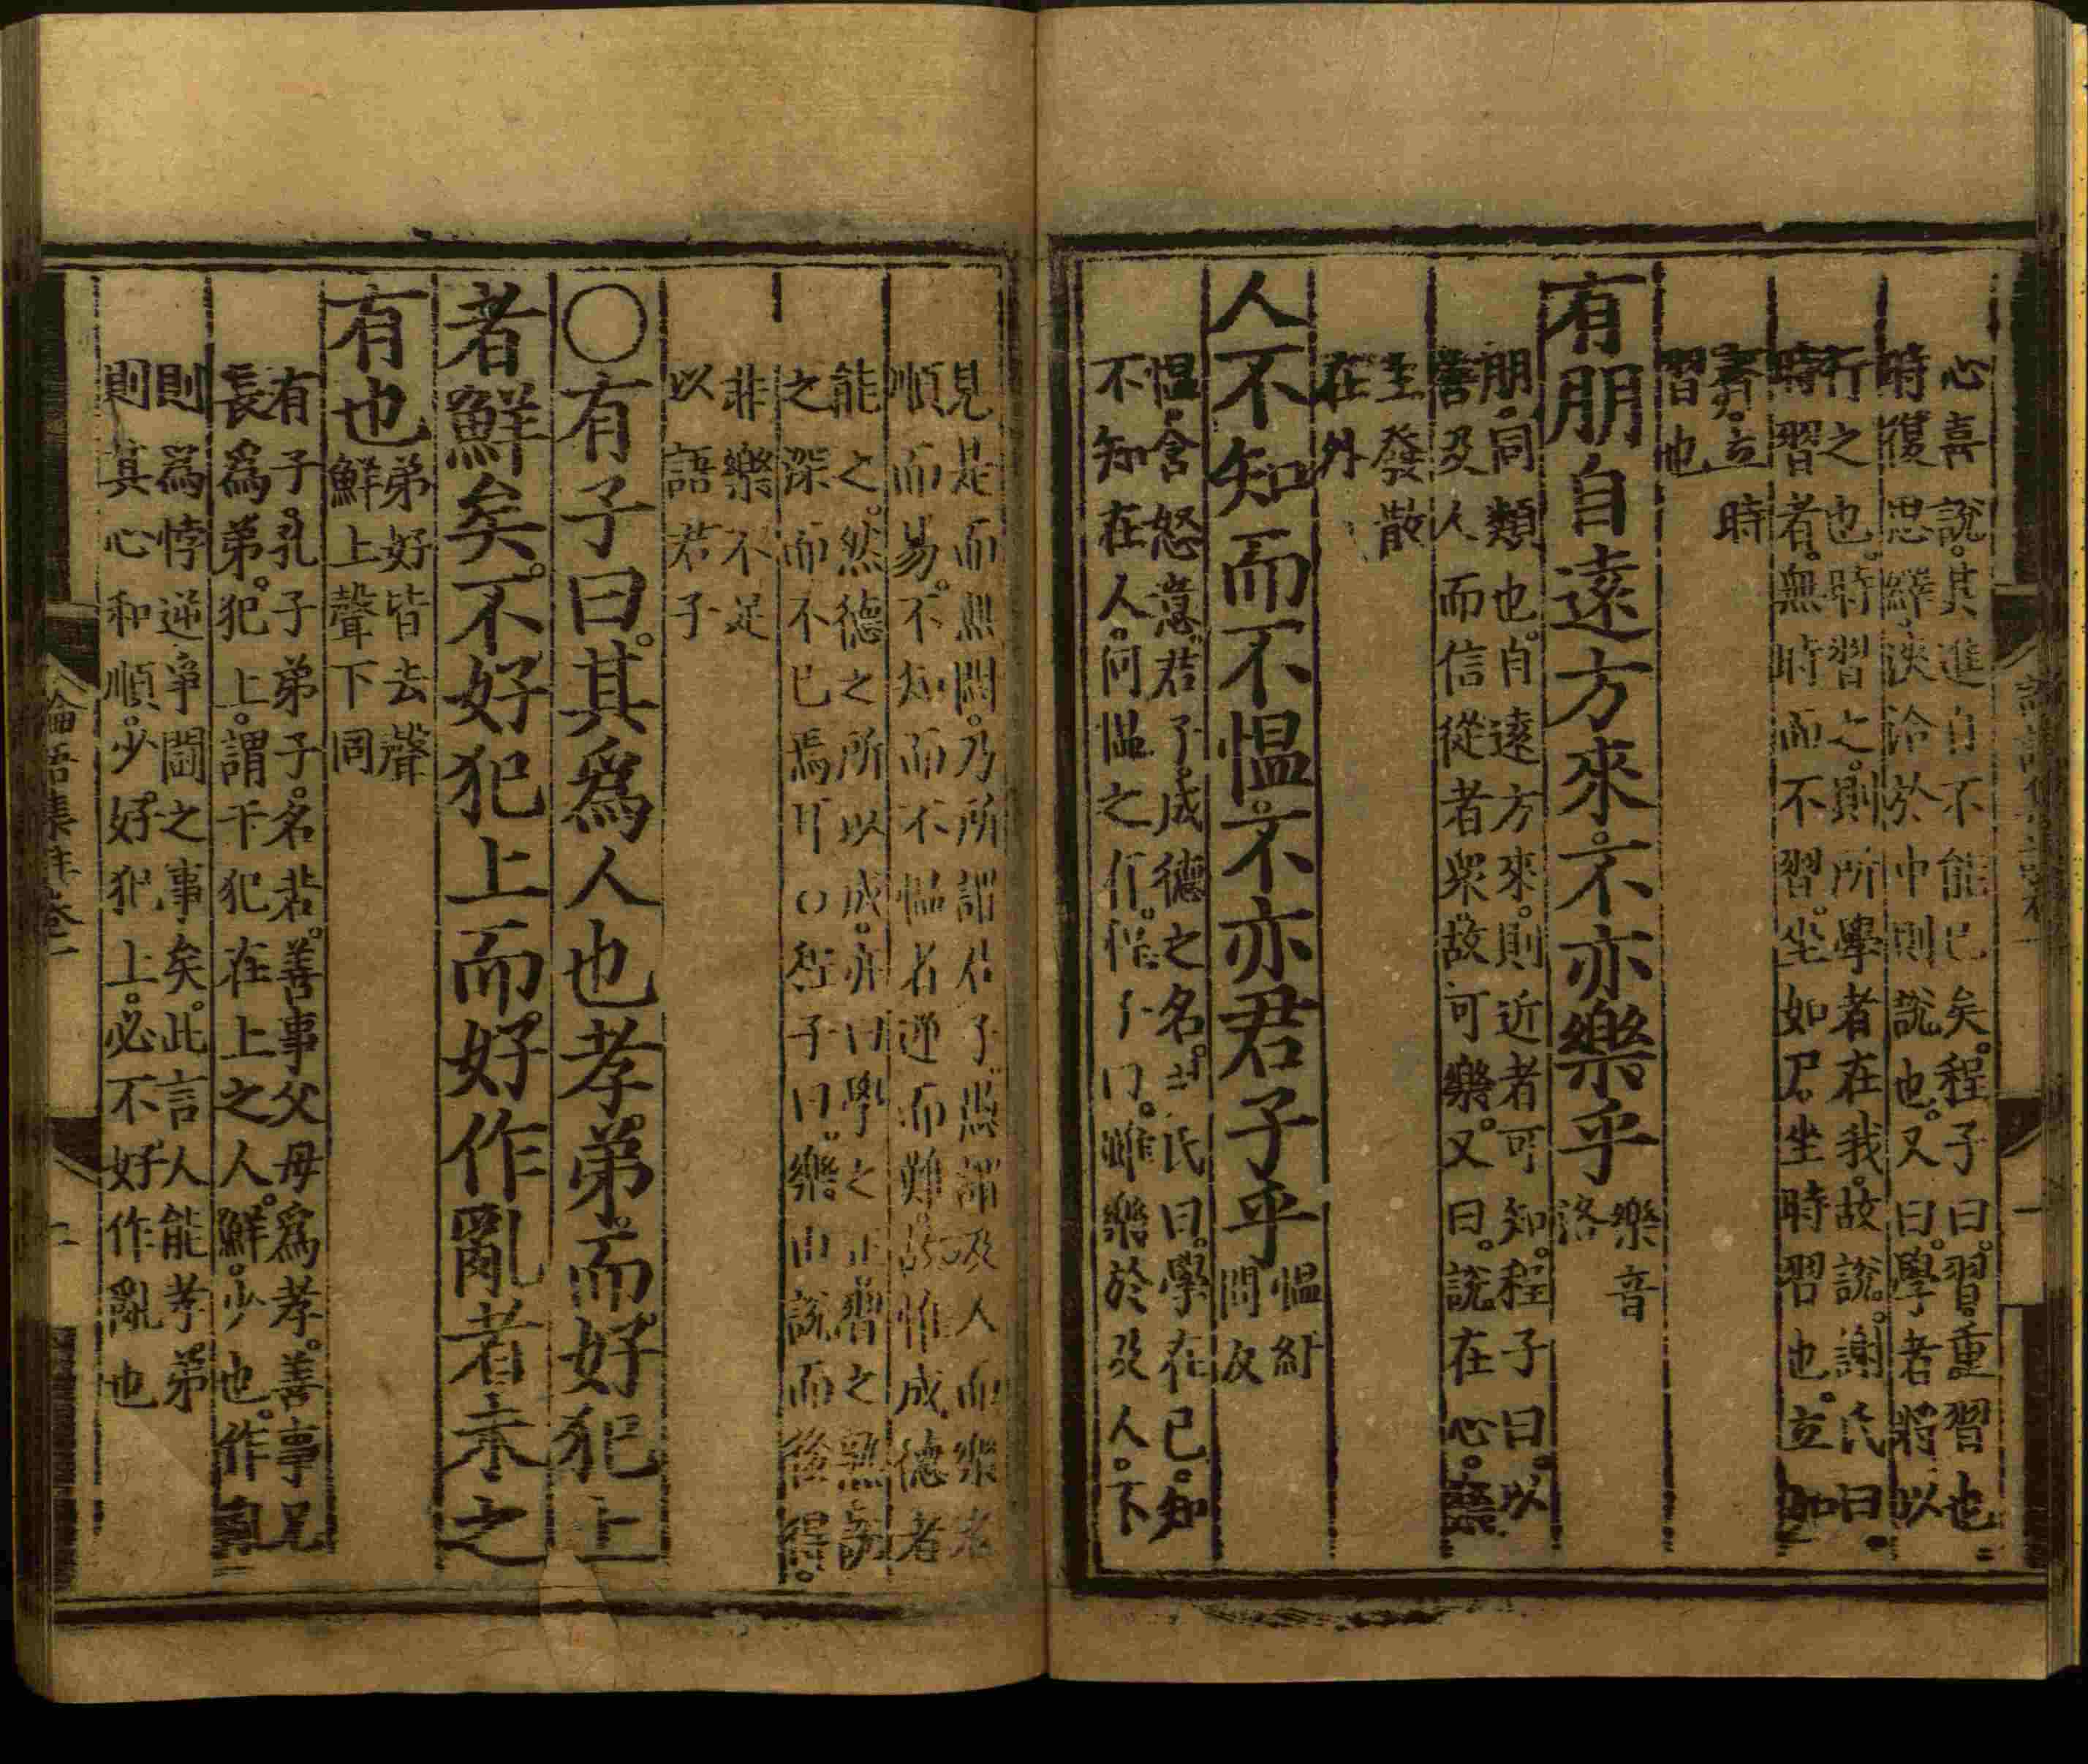 心喜說。其進自不能已矣。程子曰。習。重習也。
時復思繹。浹洽於中則說也。又曰。學者將以
行之也。時習之。則所學者在我。故說。謝氏曰。
時習者。無時而不習。坐如尸。坐時習也。立如
齊。立時
習也
有朋自遠方來。不亦樂乎
樂音
洛
朋。同類也。自遠方來。則近者可知。程子曰。以
善及人而信從者衆。故可樂。又曰。說在心。樂
主發散
在外
人不知而不慍。不亦君子乎
慍紆
問反
慍。含怒意。君子。成德之名。尹氏曰。學在已。知
不知在人。何慍之有。程子曰。雖樂於及人。不
見是而無悶。乃所謂君子。愚謂及人而樂者
順而易。不知而不慍者逆而難。故惟成德者
能之。然德之所以成。亦曰學之正。習之熟。說
之深。而不已焉耳○程子曰。樂由說而後得。
非樂不足
以語君子
○有子曰。其爲人也孝弟。而好犯上
者鮮矣。不好犯上而好作亂者未之
有也
弟好皆去聲
鮮上聲下同
有子。孔子弟子。名若。善事父母爲孝。善事兄
長爲弟。犯上。謂干犯在上之人。鮮。少也。作亂
則爲悖逆爭鬪之事矣。此言人能孝弟
則其心和順。少好犯上。必不好作亂也
論語集註卷一
二